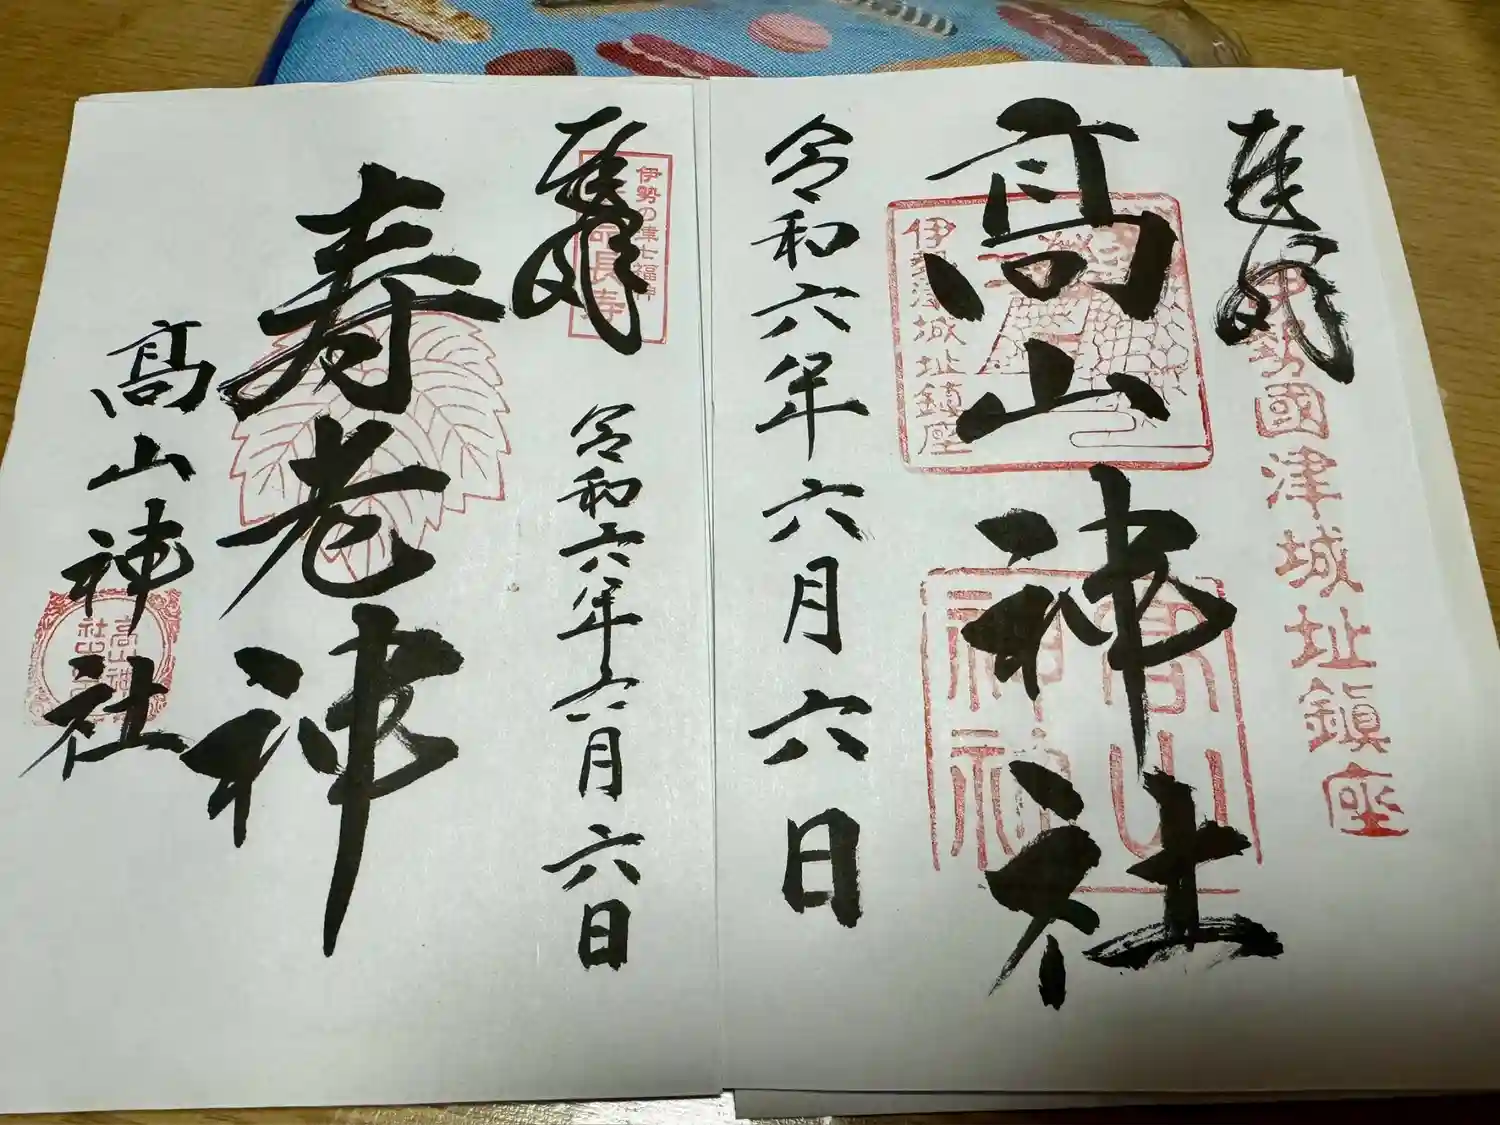 奉拝
伊勢國津城址鎮座
髙山神社
伊勢津城址鎮座
高山
神社
令和六年六月六日
奉拝
伊勢の津七福神
令和六年六月六日
寿老神
髙山神社